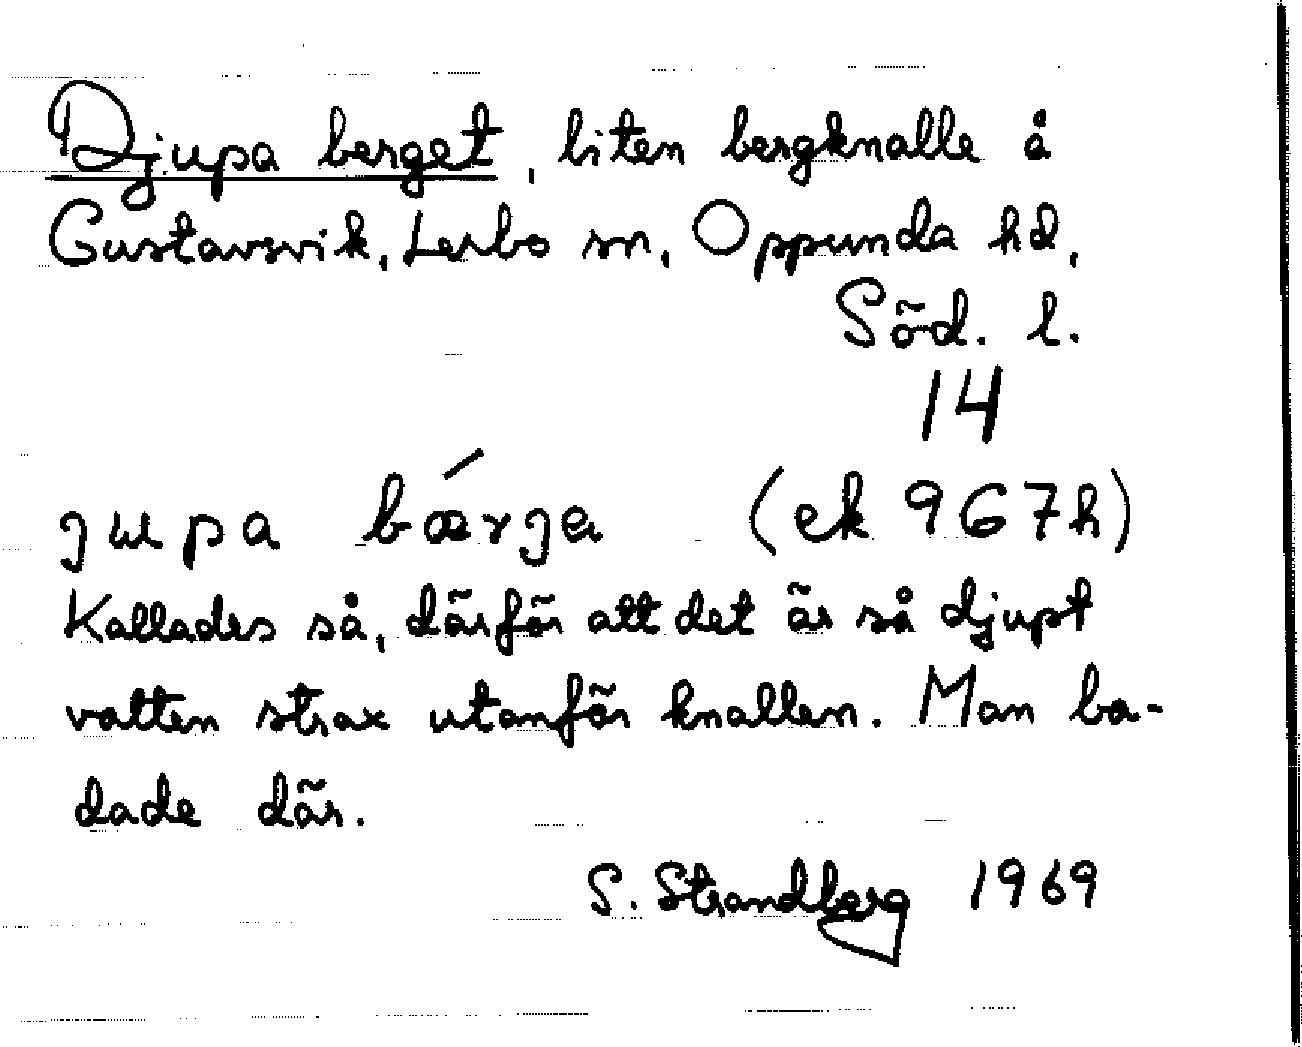 Djupa berget, liten bergknalle å
Gustavsvik, Lerbo sn, Oppunda hd,
Söd. l.
14
jupa bǽrja (ek 967h)
Kallades så, därför att det är så djupt
vatten strax utanför knallen. Man ba-
dade där.
S. Strandberg 1969